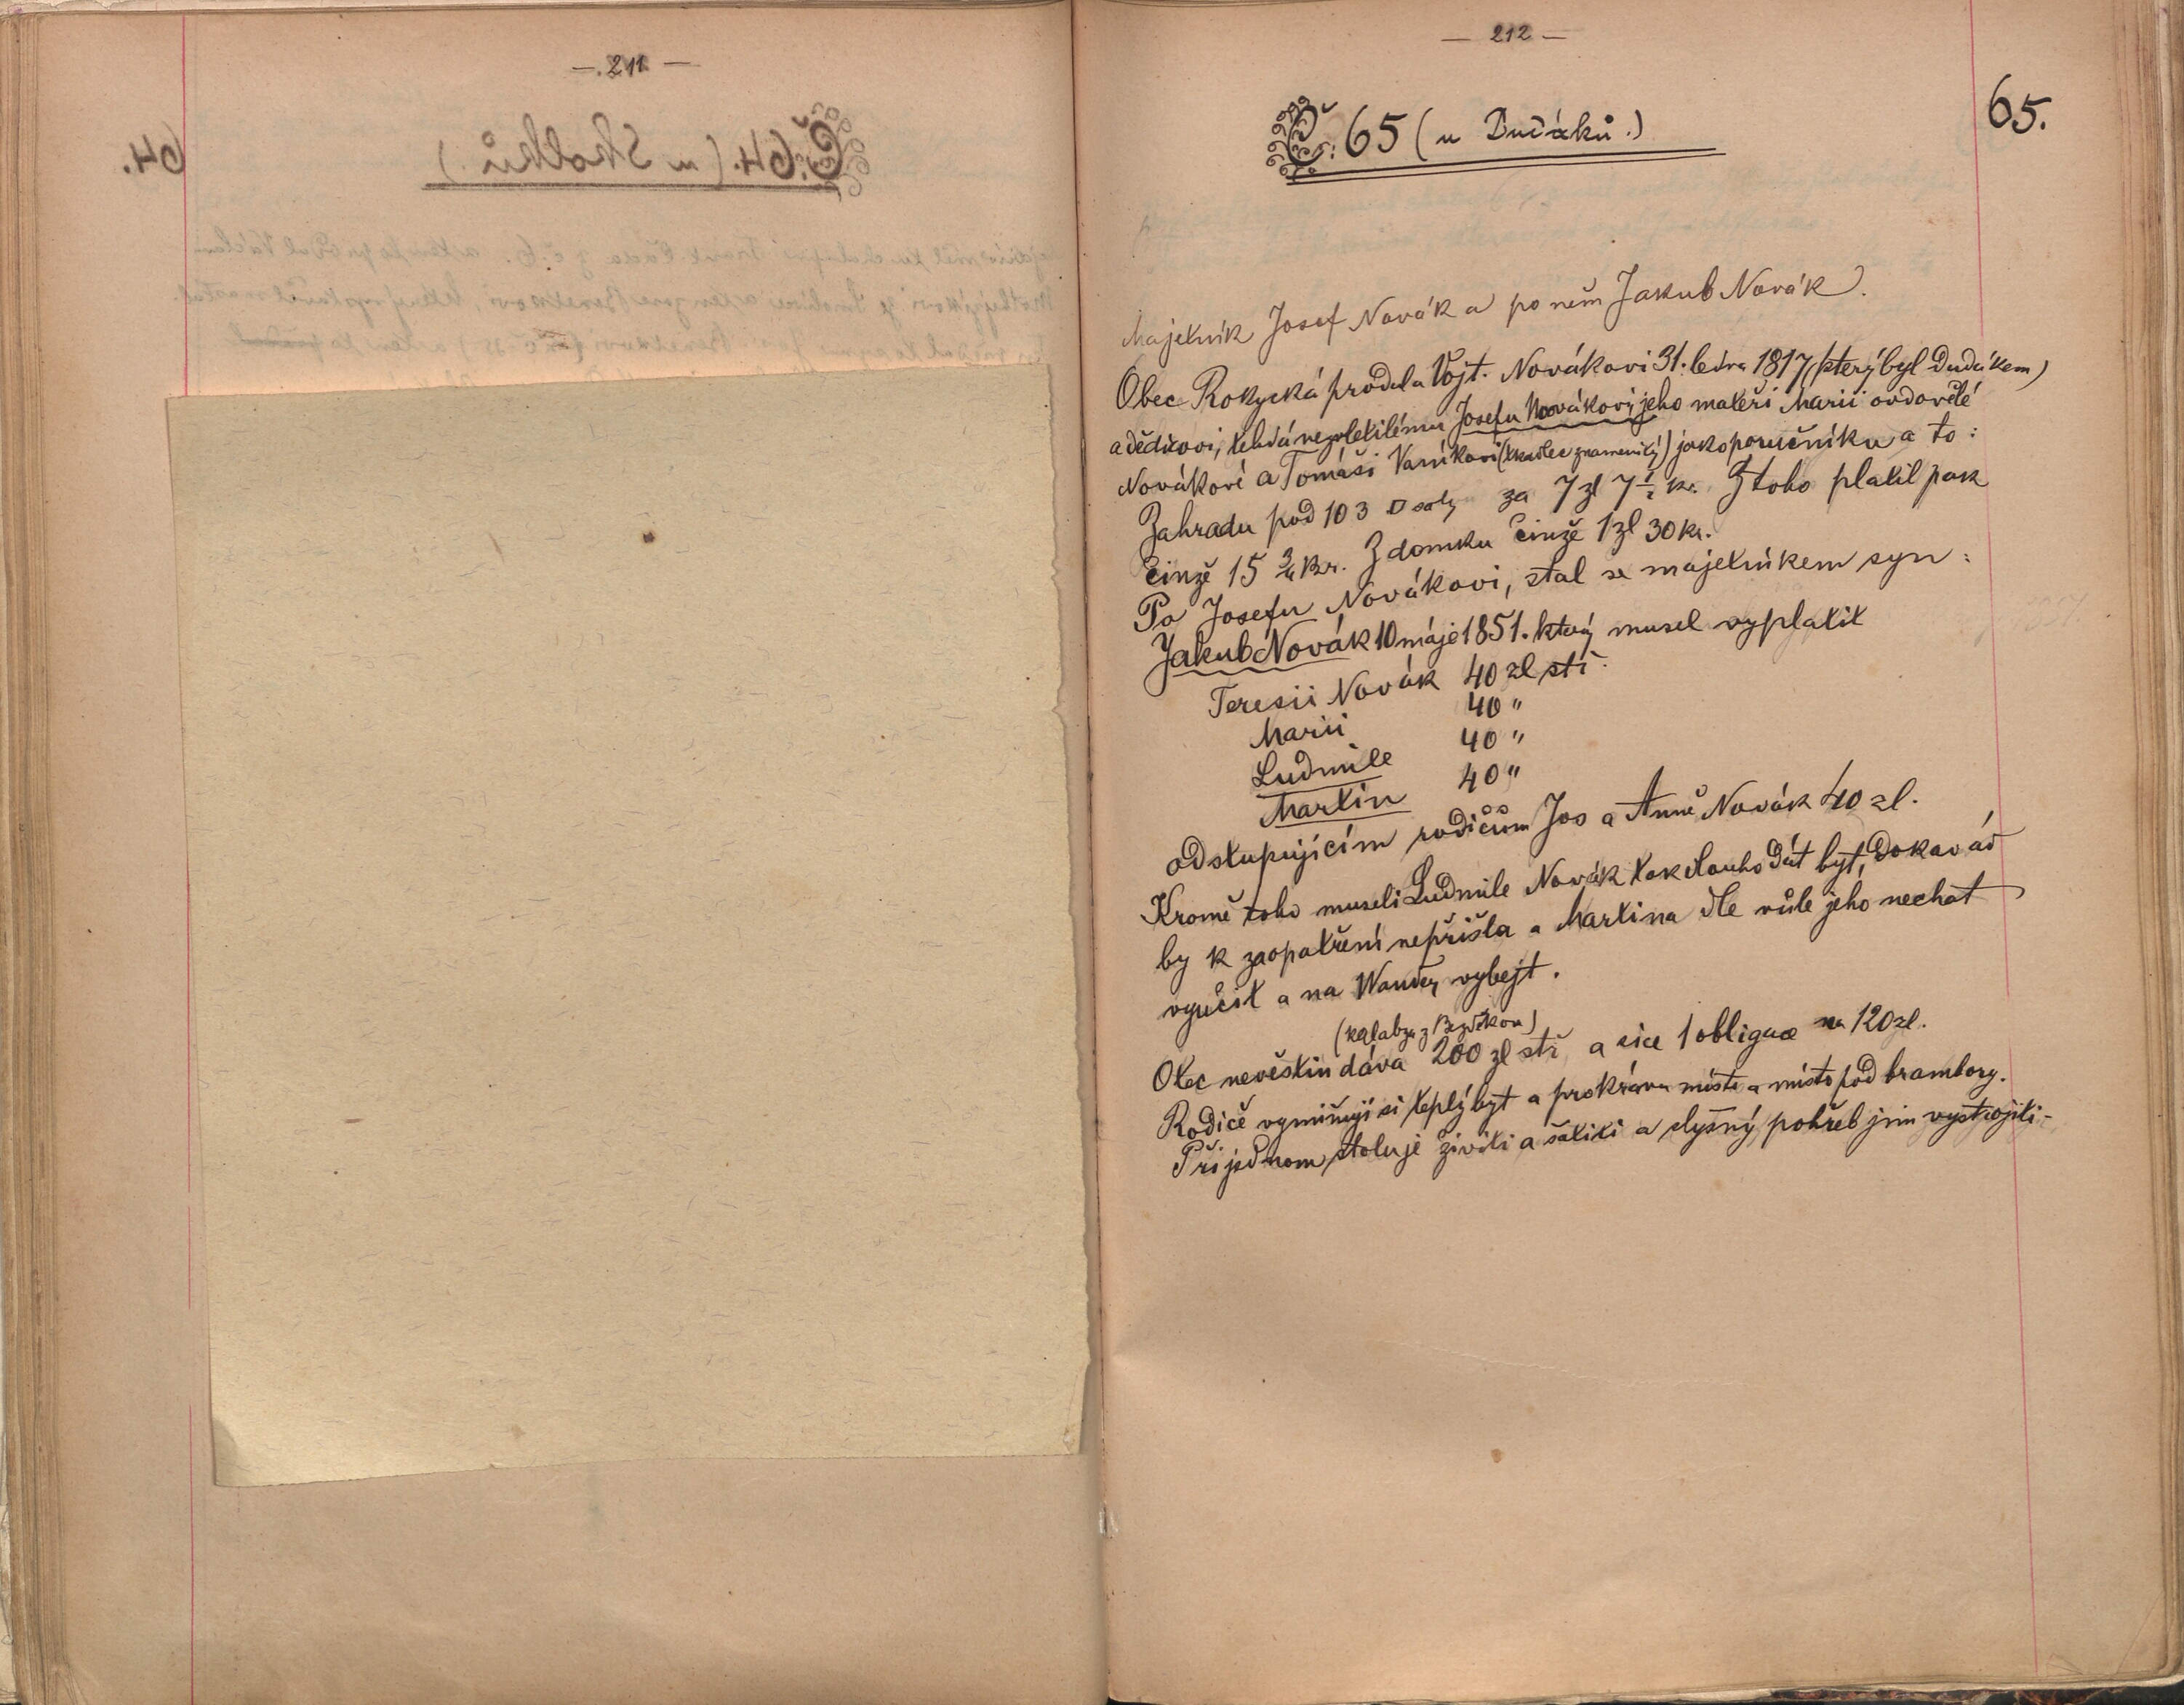 — 211 —
— 212 —
65.
Č: 65 (u Dudáků.)
Majetník Josef Novák a po něm Jakub Novák.
Obec Rokycká prodala Vojt. Novákovi 31. ledna 1817 (který byl Dudákem)
a dědicovi, tehdá nezletilému Josefu Novákovi, jeho mateři Marii ovdovělé
Novákové a Tomáši Vaníkovi (tkadlec znamenitý) jako poručníku a to:
Zahradu pod 103 □ sahy za 7 zl 7 ½ kr. Z toho platil pak
činže 15 ¾ kr. Z domku činže 1 zl 30 kr.
Po Josefu Novákovi, stal se majetníkem syn:
Jakub Novák 10 máje 1851. který musel vyplatit
Teresii Novák 40 zl stř.
Marii 40 "
Ludmile 40 "
Martin 40 "
odstupujícím rodičům Jos a Anně Novák 40 zl.
Kromě toho museli Ludmile Novák tak dlouho dát byt, dokavád
by k zaopatření nepřišla a Martina dle vůle jeho nechat
vyučit a na Wandr vybejt.
(z Bezděkova)
Otec nevěstin dáva 200 zl stř a sice 1 obligaci na 120 zl.
Rodiče vymiňují si teplý byt a pro krávu místo a místo pod brambory.
Při jednom stolu je živiti a šatiti a slyšný pohřeb jim vystrojiti.-